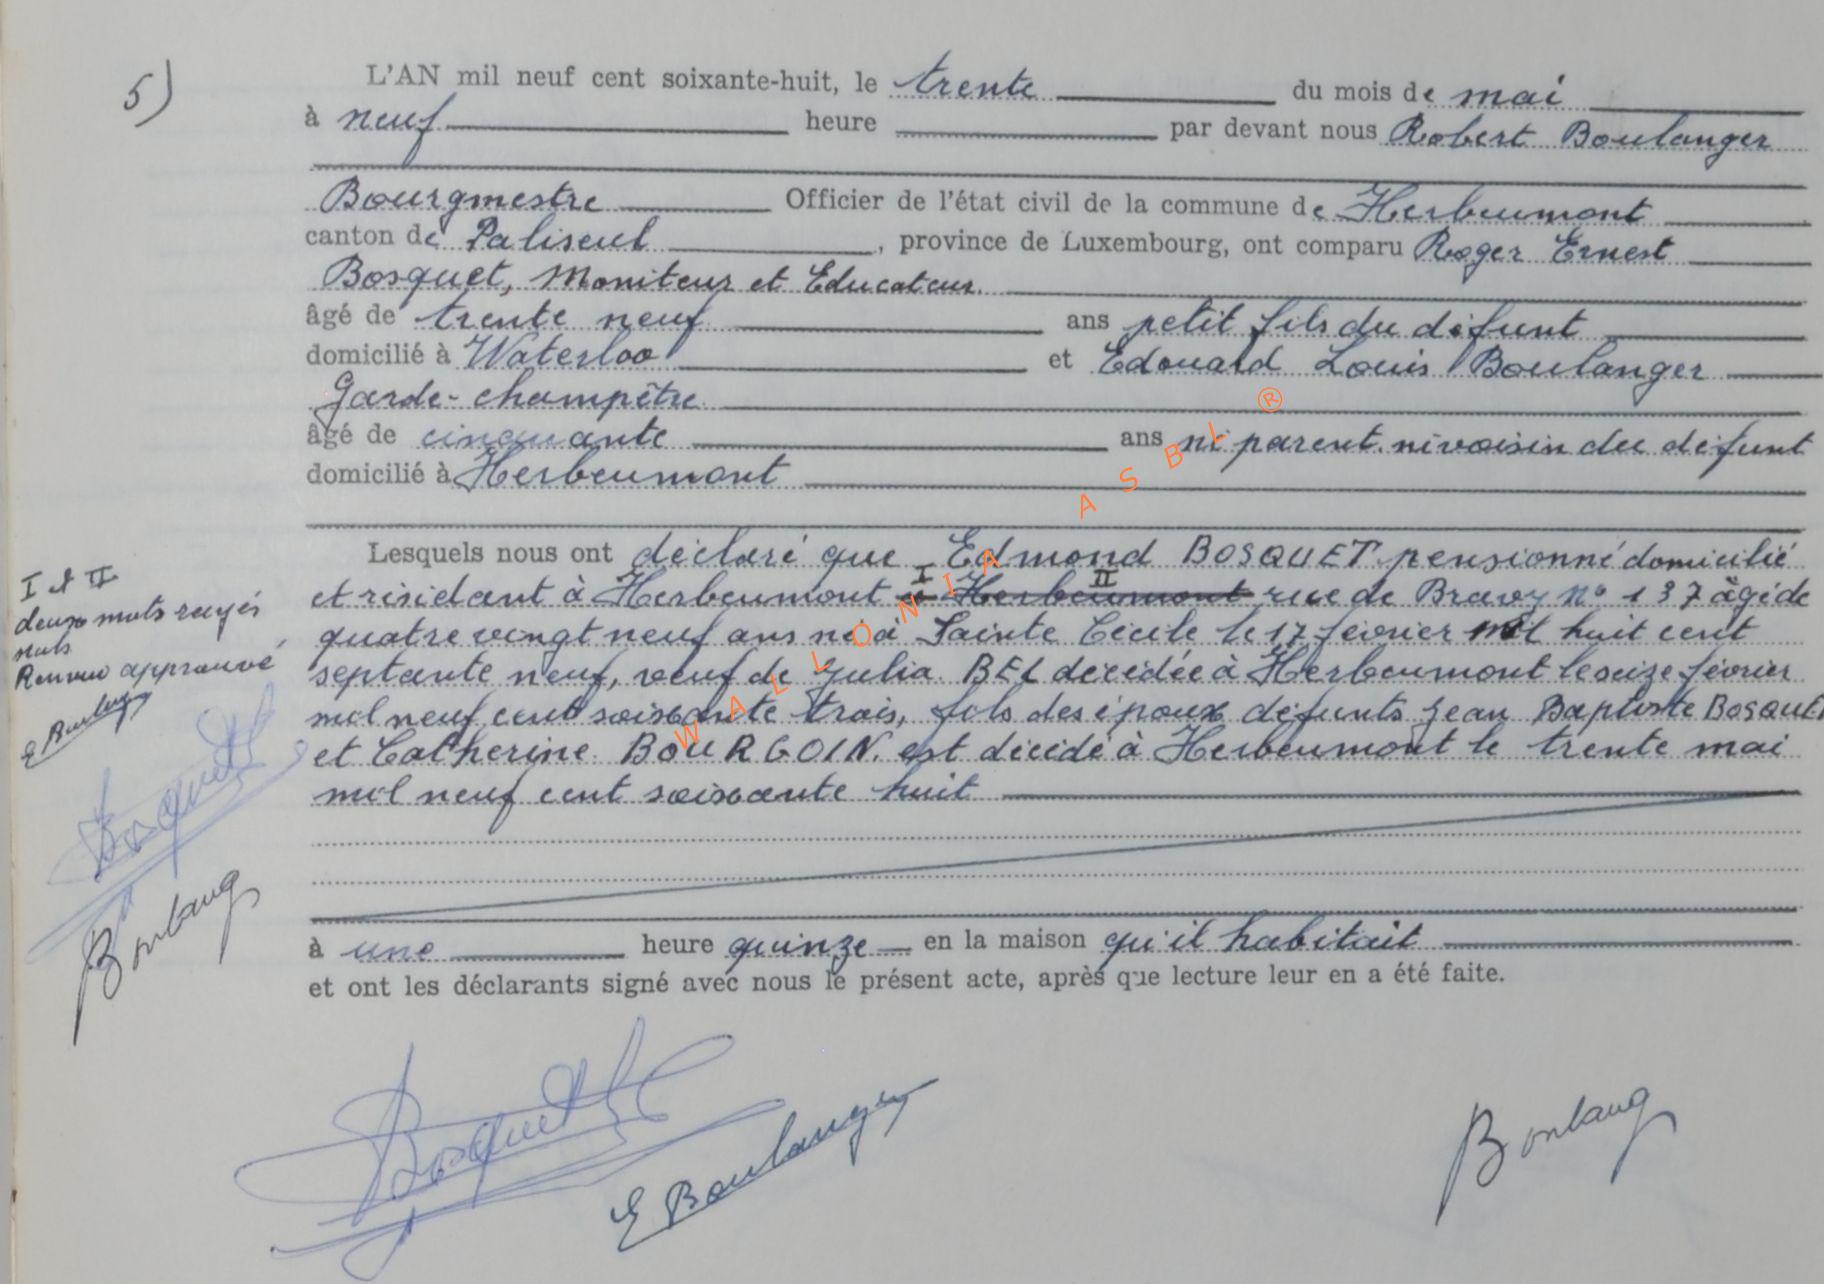 5)
L'AN mil neuf cent soixante-huit, le trente du mois de mai
à neuf heure par devant nous Robert Boulanger
Bourgmestre Officier de l'état civil de la commune de Herbeumont
canton de Paliseul, province de Luxembourg, ont comparu Roger Ernest
Bosquet, Moniteur et Educateur.
âgé de trente neuf ans petit fils du défunt
domicilié à Waterloo et Edouard Louis Boulanger
Garde-champêtre
âgé de cinquante ans ni parent ni voisin du défunt
domicilié à Herbeumont
Lesquels nous ont déclaré que Edmond BOSQUET pensionné domicilié
I II
et résidant à Herbeumont à Herbeumont rue de Bravy n° 137 âgé de
quatre vingt neuf ans né à Sainte Cécile le 17 février mil huit cent
septante neuf, veuf de Julia BEL décédée à Herbeumont le seize février
mil neuf cent soixante trois, fils des époux défunts Jean Baptiste BOSQUET
et Catherine BOURGOIN. est décédé à Herbeumont le trente mai
mil neuf cent soixante huit
à une heure quinze en la maison qu'il habitait
et ont les déclarants signé avec nous le présent acte, après que lecture leur en a été faite.
I et II
deux mots rayés
nuls
Renvoi approuvé
E Boulanger
Bosquet
Boulang
Bosquet
E Boulanger
Boulang
WALLONIA ASBL ®